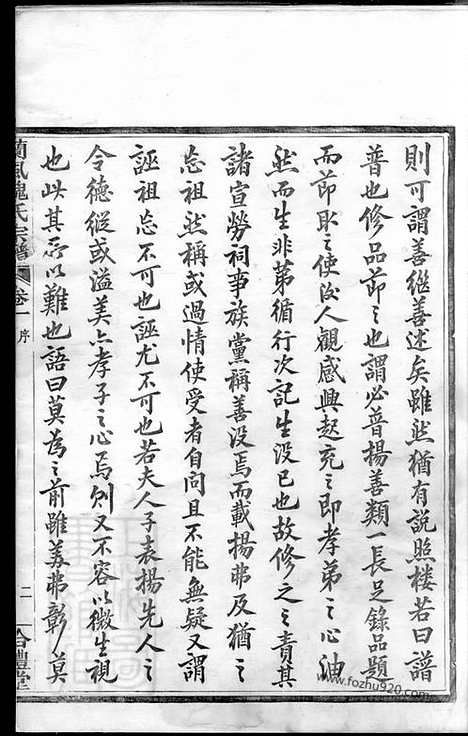 則可謂善繼善述矣雖然猶有說照樓若曰譜
普也修品節之也謂必普揚善類一長足錄品題
而節取之使後人觀感興起充之即孝弟之心油
然而生非第循行次記生没已也故修之之責其
諸宣勞祠事族黨稱善没焉而載揚弗及猶之
忘祖然稱或過情使受者自問且不能無疑又謂
誣祖忘不可也誣尤不可也若夫人子表揚先人之
令德縱或溢美亦孝子之心焉爾又不容以微生視
也此其所以難也語曰莫為之前雖美弗彰莫
蘭風魏氏宗譜
卷一
序
二
合禮堂
www.fozhu920.com